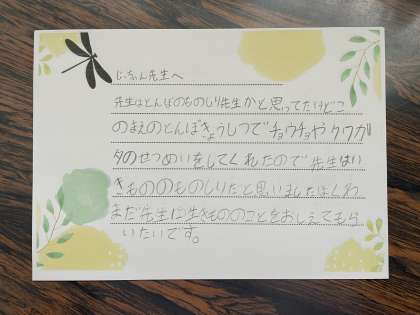 じっちゃん先生へ
先生はとんぼのものしり先生かと思ってたけどこ
のまえのとんぼきょうしつでチョウチョやクワガ
タのせつめいをしてくれたので先生はい
きもののものしりだと思いましたぼくわ
まだ先生に生きもののことをおしえてもら
いたいです。